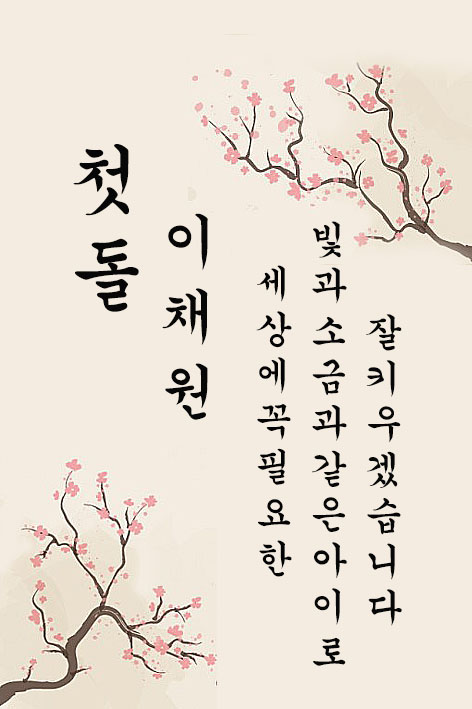 첫돌
이채원
세상에꼭필요한
빛과소금과같은아이로
잘키우겠습니다